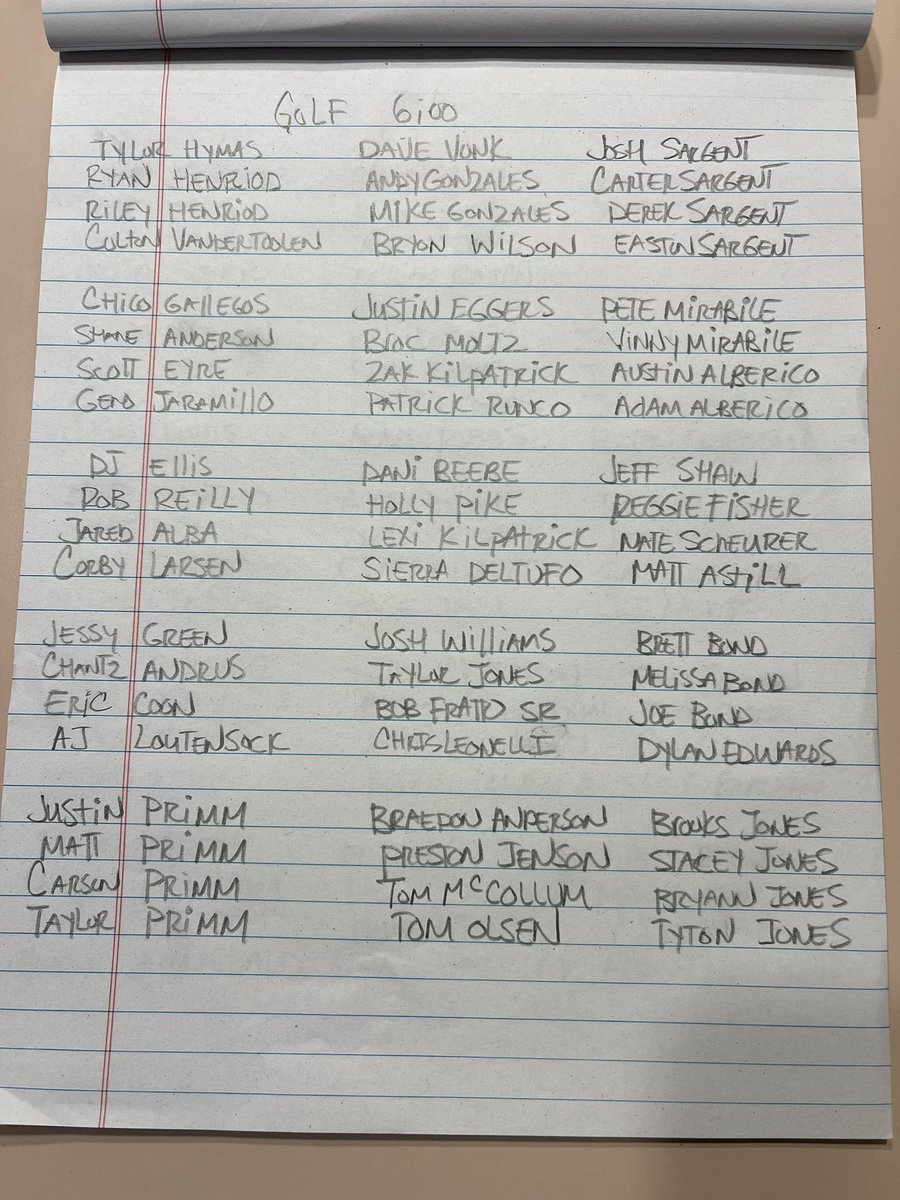 GOLF 6:00
TYLOR HYMAS DAVE VONK JOSH SARGENT
RYAN HENRIOD ANDY GONZALES CARTER SARGENT
RILEY HENRIOD MIKE GONZALES DEREK SARGENT
COLTON VANDERTOOLEN BRYON WILSON EASTON SARGENT
CHICO GALLEGOS JUSTIN EGGERS PETE MIRABILE
SHANE ANDERSON BROC MOLTZ VINNY MIRABILE
SCOTT EYRE ZAK KILPATRICK AUSTIN ALBERICO
GENO JARAMILLO PATRICK RUNCO ADAM ALBERICO
DJ ELLIS DANI BEEBE JEFF SHAW
ROB REILLY HOLLY PIKE REGGIE FISHER
JARED ALBA LEXI KILPATRICK NATE SCHEURER
CORBY LARSEN SIERRA DELTUFO MATT ASTILL
JESSY GREEN JOSH WILLIAMS BRETT BOND
CHANTZ ANDRUS TAYLOR JONES MELISSA BOND
ERIC COON BOB FRATTO SR JOE BOND
AJ LOUTENSOCK CHRIS LEONELLI DYLAN EDWARDS
JUSTIN PRIMM BRAEDON ANDERSON BROOKS JONES
MATT PRIMM PRESTON JENSON STACEY JONES
CARSON PRIMM TOM McCOLLUM BRYANN JONES
TAYLOR PRIMM TOM OLSEN TYTON JONES